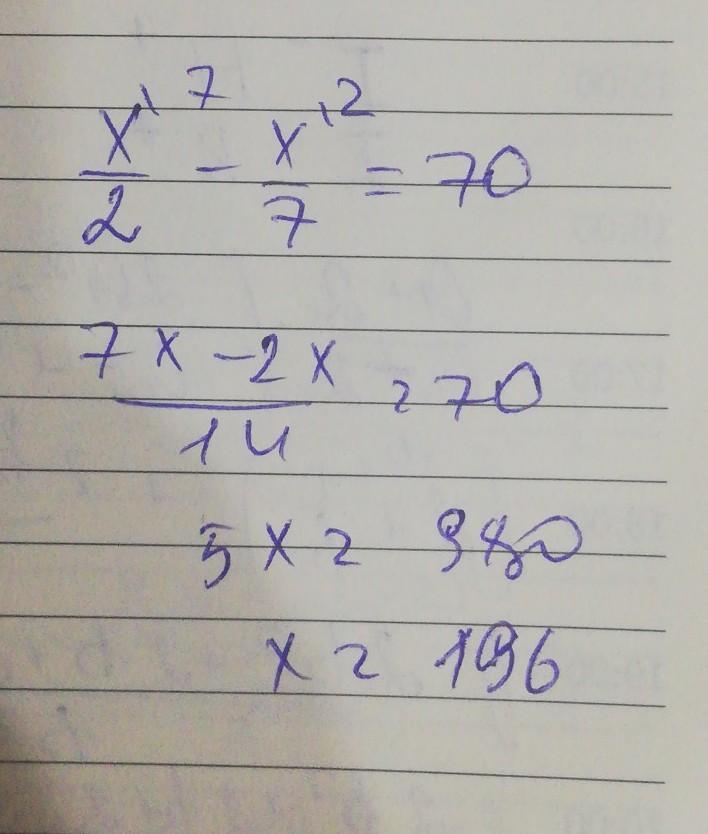 x\7/2 - x\2/7 = 70
7x - 2x/14 = 70
5x = 980
x = 196